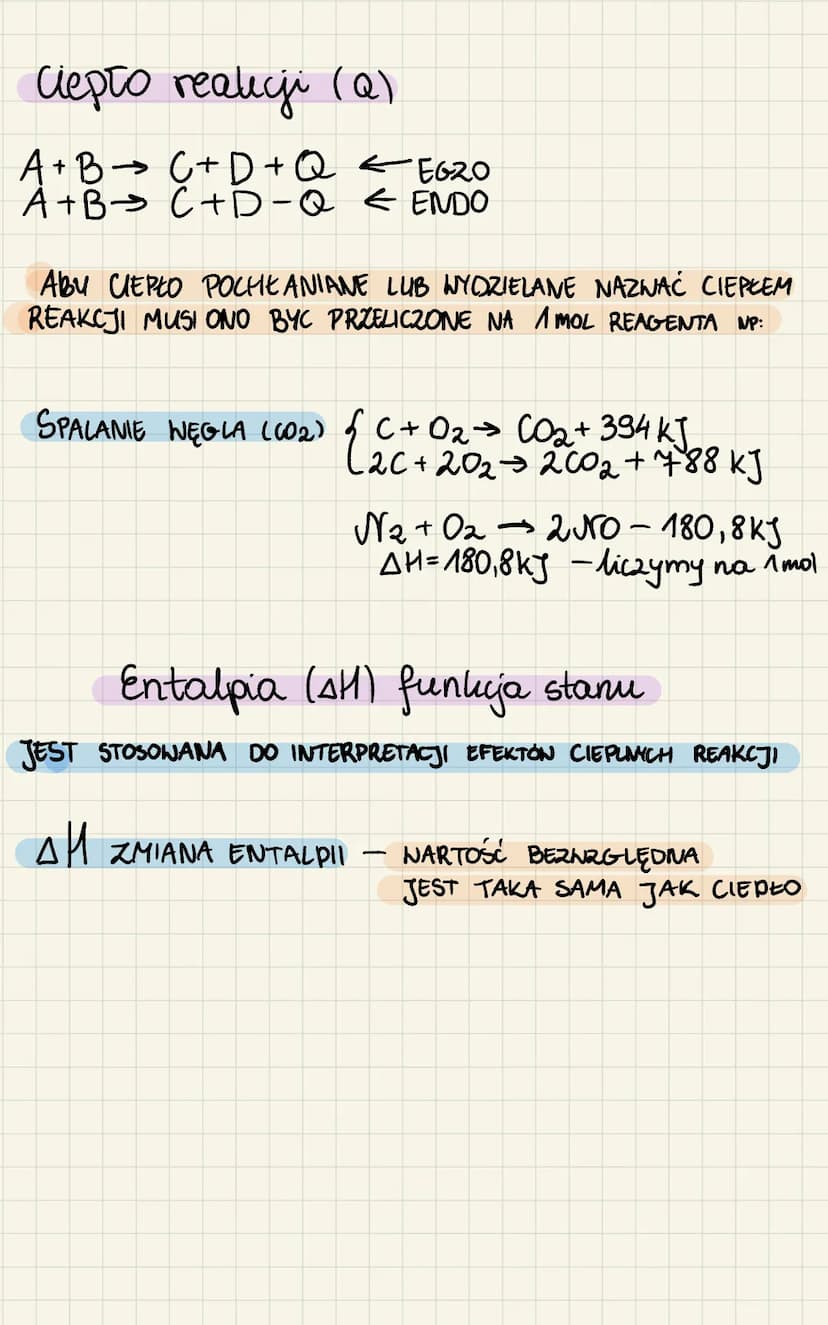 Ciepło reakcji (Q)
A + B → C + D + Q ← EGZO
A + B → C + D - Q ← ENDO
ABY CIEPŁO POCHŁANIANE LUB WYDZIELANE NAZWAĆ CIEPŁEM
REAKCJI MUSI ONO BYC PRZELICZONE NA 1 MOL REAGENTA NP:
SPALANIE WĘGLA (CO2) { C + O2 → CO2 + 394 kJ
2C + 2O2 → 2CO2 + 788 kJ
N2 + O2 → 2NO - 180,8kJ
ΔH = 180,8kJ - liczymy na 1mol
Entalpia (ΔH) funkcja stanu
JEST STOSOWANA DO INTERPRETACJI EFEKTÓW CIEPLNYCH REAKCJI
ΔH ZMIANA ENTALPII - WARTOŚĆ BEZWZGLĘDNA
JEST TAKA SAMA JAK CIEPŁO